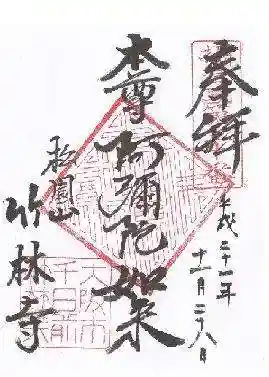 奉拝
平成二十一年
十一月二十八日
本尊
阿彌陀如来
竹林寺
大阪市
千日前